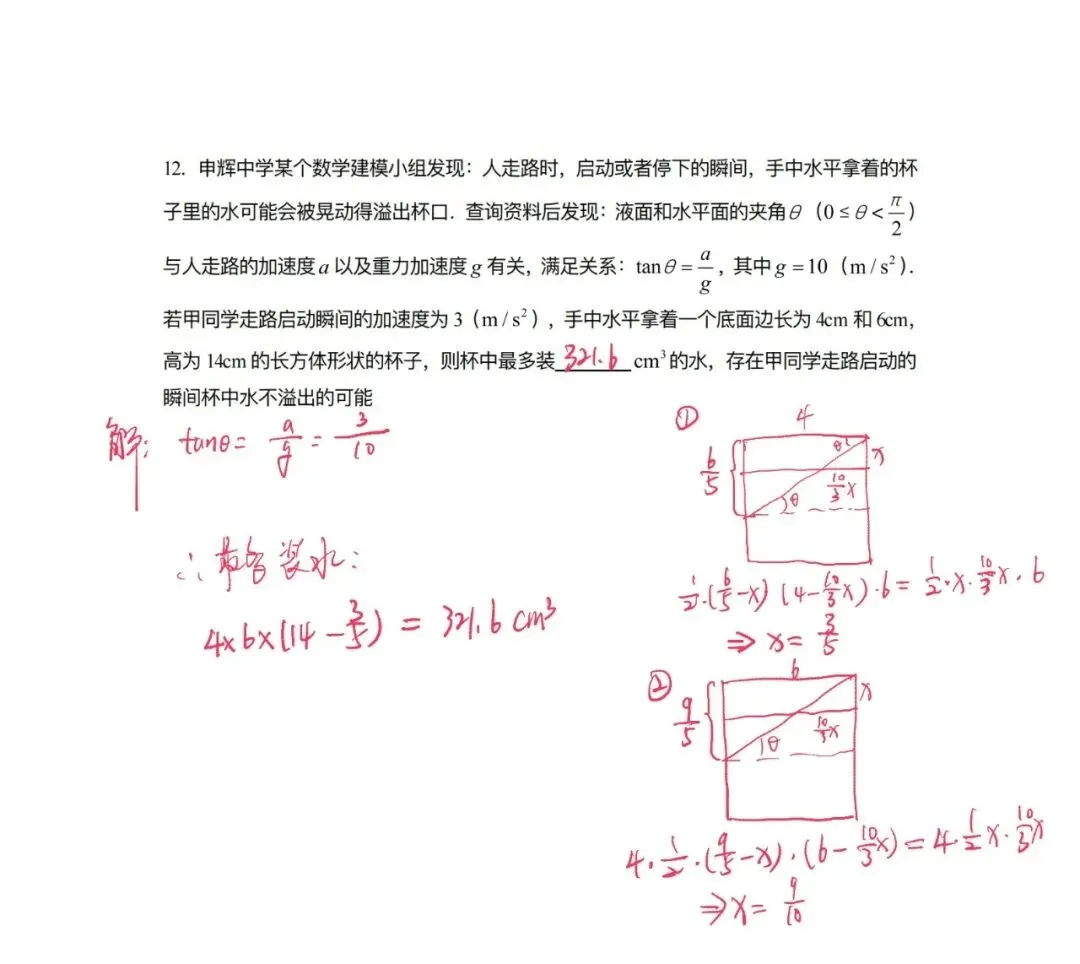 12. 申辉中学某个数学建模小组发现：人走路时，启动或者停下的瞬间，手中水平拿着的杯
子里的水可能会被晃动得溢出杯口．查询资料后发现：液面和水平面的夹角θ（0≤θ<π/2）
与人走路的加速度a以及重力加速度g有关，满足关系：tanθ=a/g，其中g=10（m/s²）．
若甲同学走路启动瞬间的加速度为3（m/s²），手中水平拿着一个底面边长为4cm和6cm，
高为14cm的长方体形状的杯子，则杯中最多装321.6cm³的水，存在甲同学走路启动的
瞬间杯中水不溢出的可能
解： tanθ= a/g = 3/10
∴最多装水：
4×6×(14-3/5) = 321.6 cm³
①
4
6/5
θ
x
θ
10/3x
1/2·(6/5-x)(4-10/3x)·6=1/2·x·10/3x·6
⇒ x= 3/5
②
6
9/5
x
θ
10/3x
4·1/2·(9/5-x)·(6-10/3x)=4·1/2x·10/3x
⇒x= 9/10